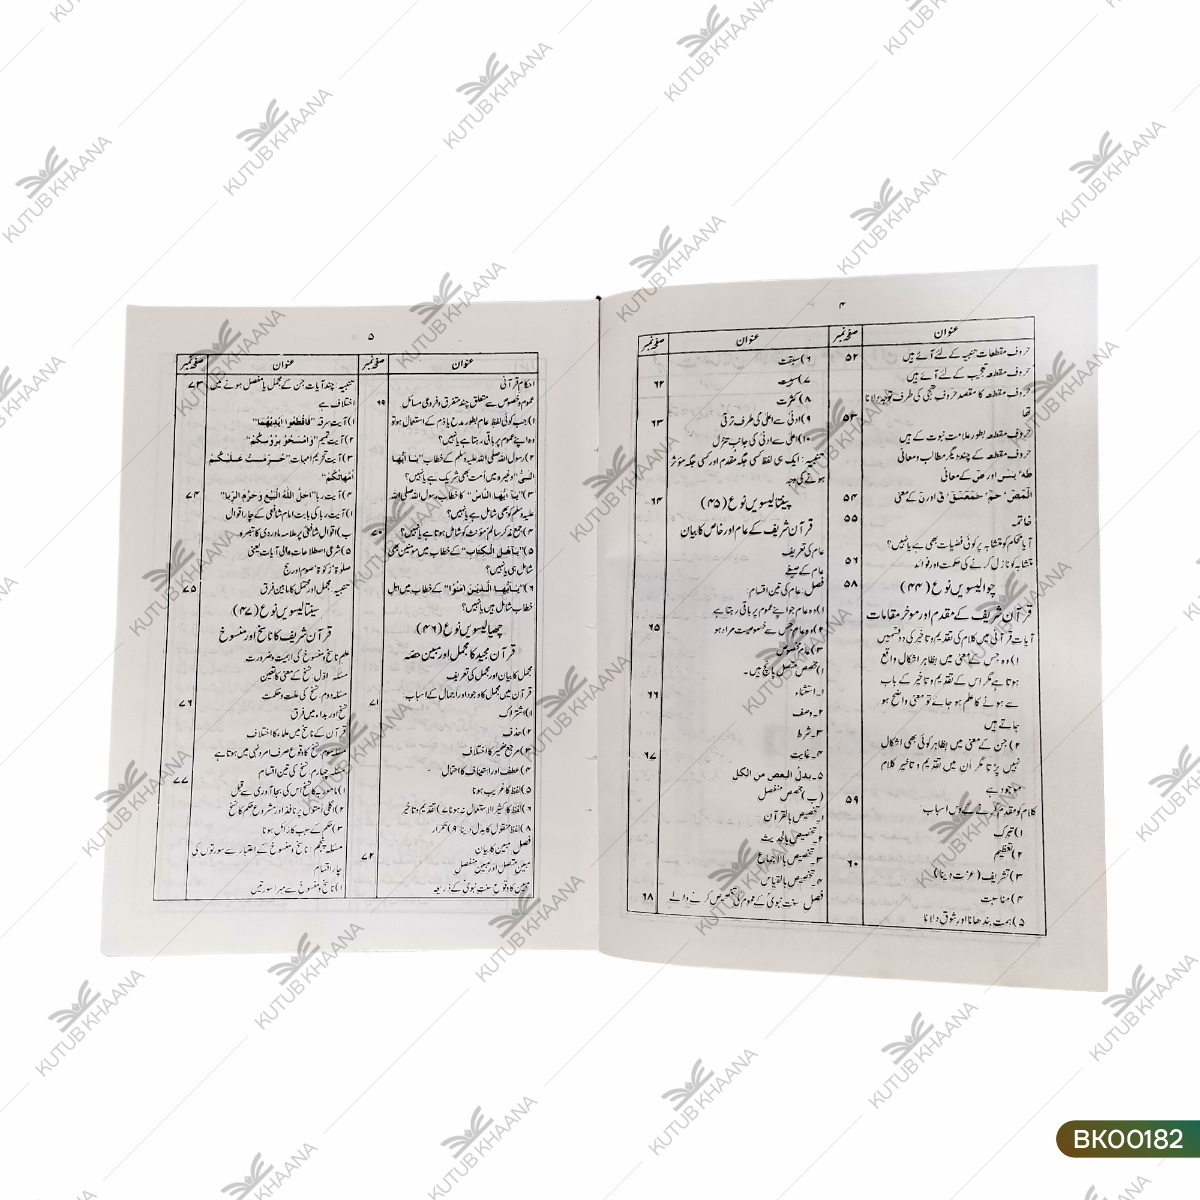 ۴
عنوان
صفحہ نمبر
حروف مقطعات تنبیہ کے لئے آئے ہیں
۵۲
حروف مقطعہ تعجب کے لئے آئے ہیں
حروف مقطعہ کا مقصد حروف تہجی کی طرف توجہ دلانا
تھا
۵۳
حروف مقطعہ بطور علامت نبوت کے ہیں
حروف مقطعہ کے چند دیگر مطالب و معانی
طہٰ، یٰس اور صٓ کے معانی
الٓمّصٓ، حٰم، حٰمعسق، ق اور ن کے معنی
۵۴
خاتمہ
۵۵
آیا محکم کو متشابہ پر کوئی فضیلت بھی ہے یا نہیں؟
متشابہ کو نازل کرنے کی حکمت اور فوائد
۵۶
چوالیسویں نوع (۴۴)
۵۸
قرآن شریف کے مقدم اور موخر مقامات
آیات قرآنی میں کلام کی تقدیم و تاخیر کی دو قسمیں
۱) وہ جس کے معنی میں بظاہر اشکال واقع
ہوتا ہے مگر اس کے تقدیم و تاخیر کے باب
سے ہونے کا علم ہو جائے تو معنی واضح ہو
جاتے ہیں
۲) جن کے معنی میں بظاہر کوئی بھی اشکال
نہیں پڑتا مگر اُن میں تقدیم و تاخیر کلام
موجود ہے
۵۹
کلام کو مقدم کرنے کے دس اسباب
۱) تبرک
۲) تعظیم
۳) تشریف (عزت دینا)
۶۰
۴) مناسبت
۵) ہمت بندھانا اور شوق دلانا
عنوان
صفحہ نمبر
۶) سبقت
۷) سببیت
۶۲
۸) کثرت
۹) ادنیٰ سے اعلیٰ کی طرف ترقی
۶۳
۱۰) اعلیٰ سے ادنیٰ کی جانب تنزل
تنبیہ: ایک ہی لفظ کسی جگہ مقدم اور کسی جگہ مؤخر
ہونے کی وجہ
پینتالیسویں نوع (۴۵)
۶۴
قرآن شریف کے عام اور خاص کا بیان
عام کی تعریف
عام کے صیغے
فصل: عام کی تین اقسام:
۱) وہ عام جو اپنے عموم پر باقی رہتا ہے
۲) وہ عام جس سے خصوصیت مراد ہو
۶۵
۳) عام مخصوص
۱) مخصص متصل پانچ ہیں۔
۱۔ استثناء
۶۶
۲۔ وصف
۳۔ شرط
۴۔ غایت
۶۷
۵۔ بدل البعض من الکل
(ب) مخصص منفصل
۱۔ تخصیص بالقرآن
۲۔ تخصیص بالحدیث
۳۔ تخصیص بالاجماع
۴۔ تخصیص بالقیاس
فصل سنت نبوی کے عموم کی تخصیص کرنے والے
۶۸
۵
عنوان
صفحہ نمبر
احکام قرآنی
عموم و خصوص سے متعلق چند متفرق و فروعی مسائل
۶۹
۱) جب کوئی لفظ عام بطور مدح یا ذم کے استعمال ہو تو
وہ اپنے عموم پر باقی رہتا ہے یا نہیں؟
۲) رسول اللہ صلی اللہ علیہ وسلم کے خطاب "یا ایھا
النبی" وغیرہ میں امت بھی شریک ہے یا نہیں؟
۳) "یا ایھا الناس" کا خطاب رسول اللہ صلی اللہ
علیہ وسلم کو بھی شامل ہے یا نہیں؟
۴) جمع مذکر سالم مؤنث کو شامل ہوتا ہے یا نہیں؟
۷۰
۵) "یا اھل الکتاب" کے خطاب میں مومنین بھی
شامل ہیں یا نہیں؟
۶) "یا ایھا الذین امنوا" کے خطاب میں اہل
خطاب شامل ہیں یا نہیں؟
چھیالیسویں نوع (۴۶)
قرآن مجید کا مجمل اور مبین حصہ
مجمل کا بیان اور مجمل کی تعریف
قرآن میں مجمل کا وجود اور اجمال کے اسباب:
۷۱
۱) اشتراک
۲) حذف
۳) مرجع ضمیر کا اختلاف
۴) عطف اور استیناف کا احتمال
۵) لفظ کا غریب ہونا
۶) لفظ کا کثیر الاستعمال نہ ہونا ۷) تقدیم و تاخیر
۸) لفظ منقول کا بدل دینا ۹) تکرار
فصل مبین کا بیان
۷۲
مبین متصل اور مبین منفصل
تبیین کا وقوع سنت نبوی کے ذریعہ
عنوان
صفحہ نمبر
تنبیہ: چند آیات جن کے مجمل یا مفصل ہونے میں
۷۳
اختلاف ہے
۱) آیت سرقہ "فاقطعوا ایدیھما"
۲) آیت تیمم "وامسحوا برؤسکم"
۳) آیت تحریم امہات "حرمت علیکم
امھاتکم"
۴) آیت ربا "احل اللہ البیع وحرم الربا"
۷۴
ا) آیت ربا کی بابت امام شافعی کے چار اقوال
ب) اقوال شافعی پر علامہ ماوردی کا تبصرہ
۵) شرعی اصطلاحات والی آیات یعنی
صلوٰۃ، زکوٰۃ، صوم اور حج
تنبیہ: مجمل اور محتمل کا مابین فرق
۷۵
سینتالیسویں نوع (۴۷)
قرآن شریف کا ناسخ اور منسوخ
علم ناسخ و منسوخ کی اہمیت و ضرورت
مسئلہ اوّل: نسخ کے معنی کا تعین
مسئلہ دوم نسخ کی علت و حکمت
۷۶
نسخ اور بداء میں فرق
قرآن کے ناسخ میں علماء کا اختلاف
مسئلہ سوم: نسخ کا وقوع صرف امر و نہی میں ہوتا ہے
مسئلہ چہارم: نسخ کی تین اقسام
۷۷
۱) مامور بہ کا نسخ اس کی بجا آوری سے قبل
۲) اگلی امتوں پر نافذ اور مشروع حکم کا نسخ
۳) حکم کے سبب کا زائل ہونا
مسئلہ پنجم: ناسخ و منسوخ کے اعتبار سے سورتوں کی
چار اقسام
۱) ناسخ و منسوخ سے مبرا سورتیں
KUTUB KHAANA
BK00182